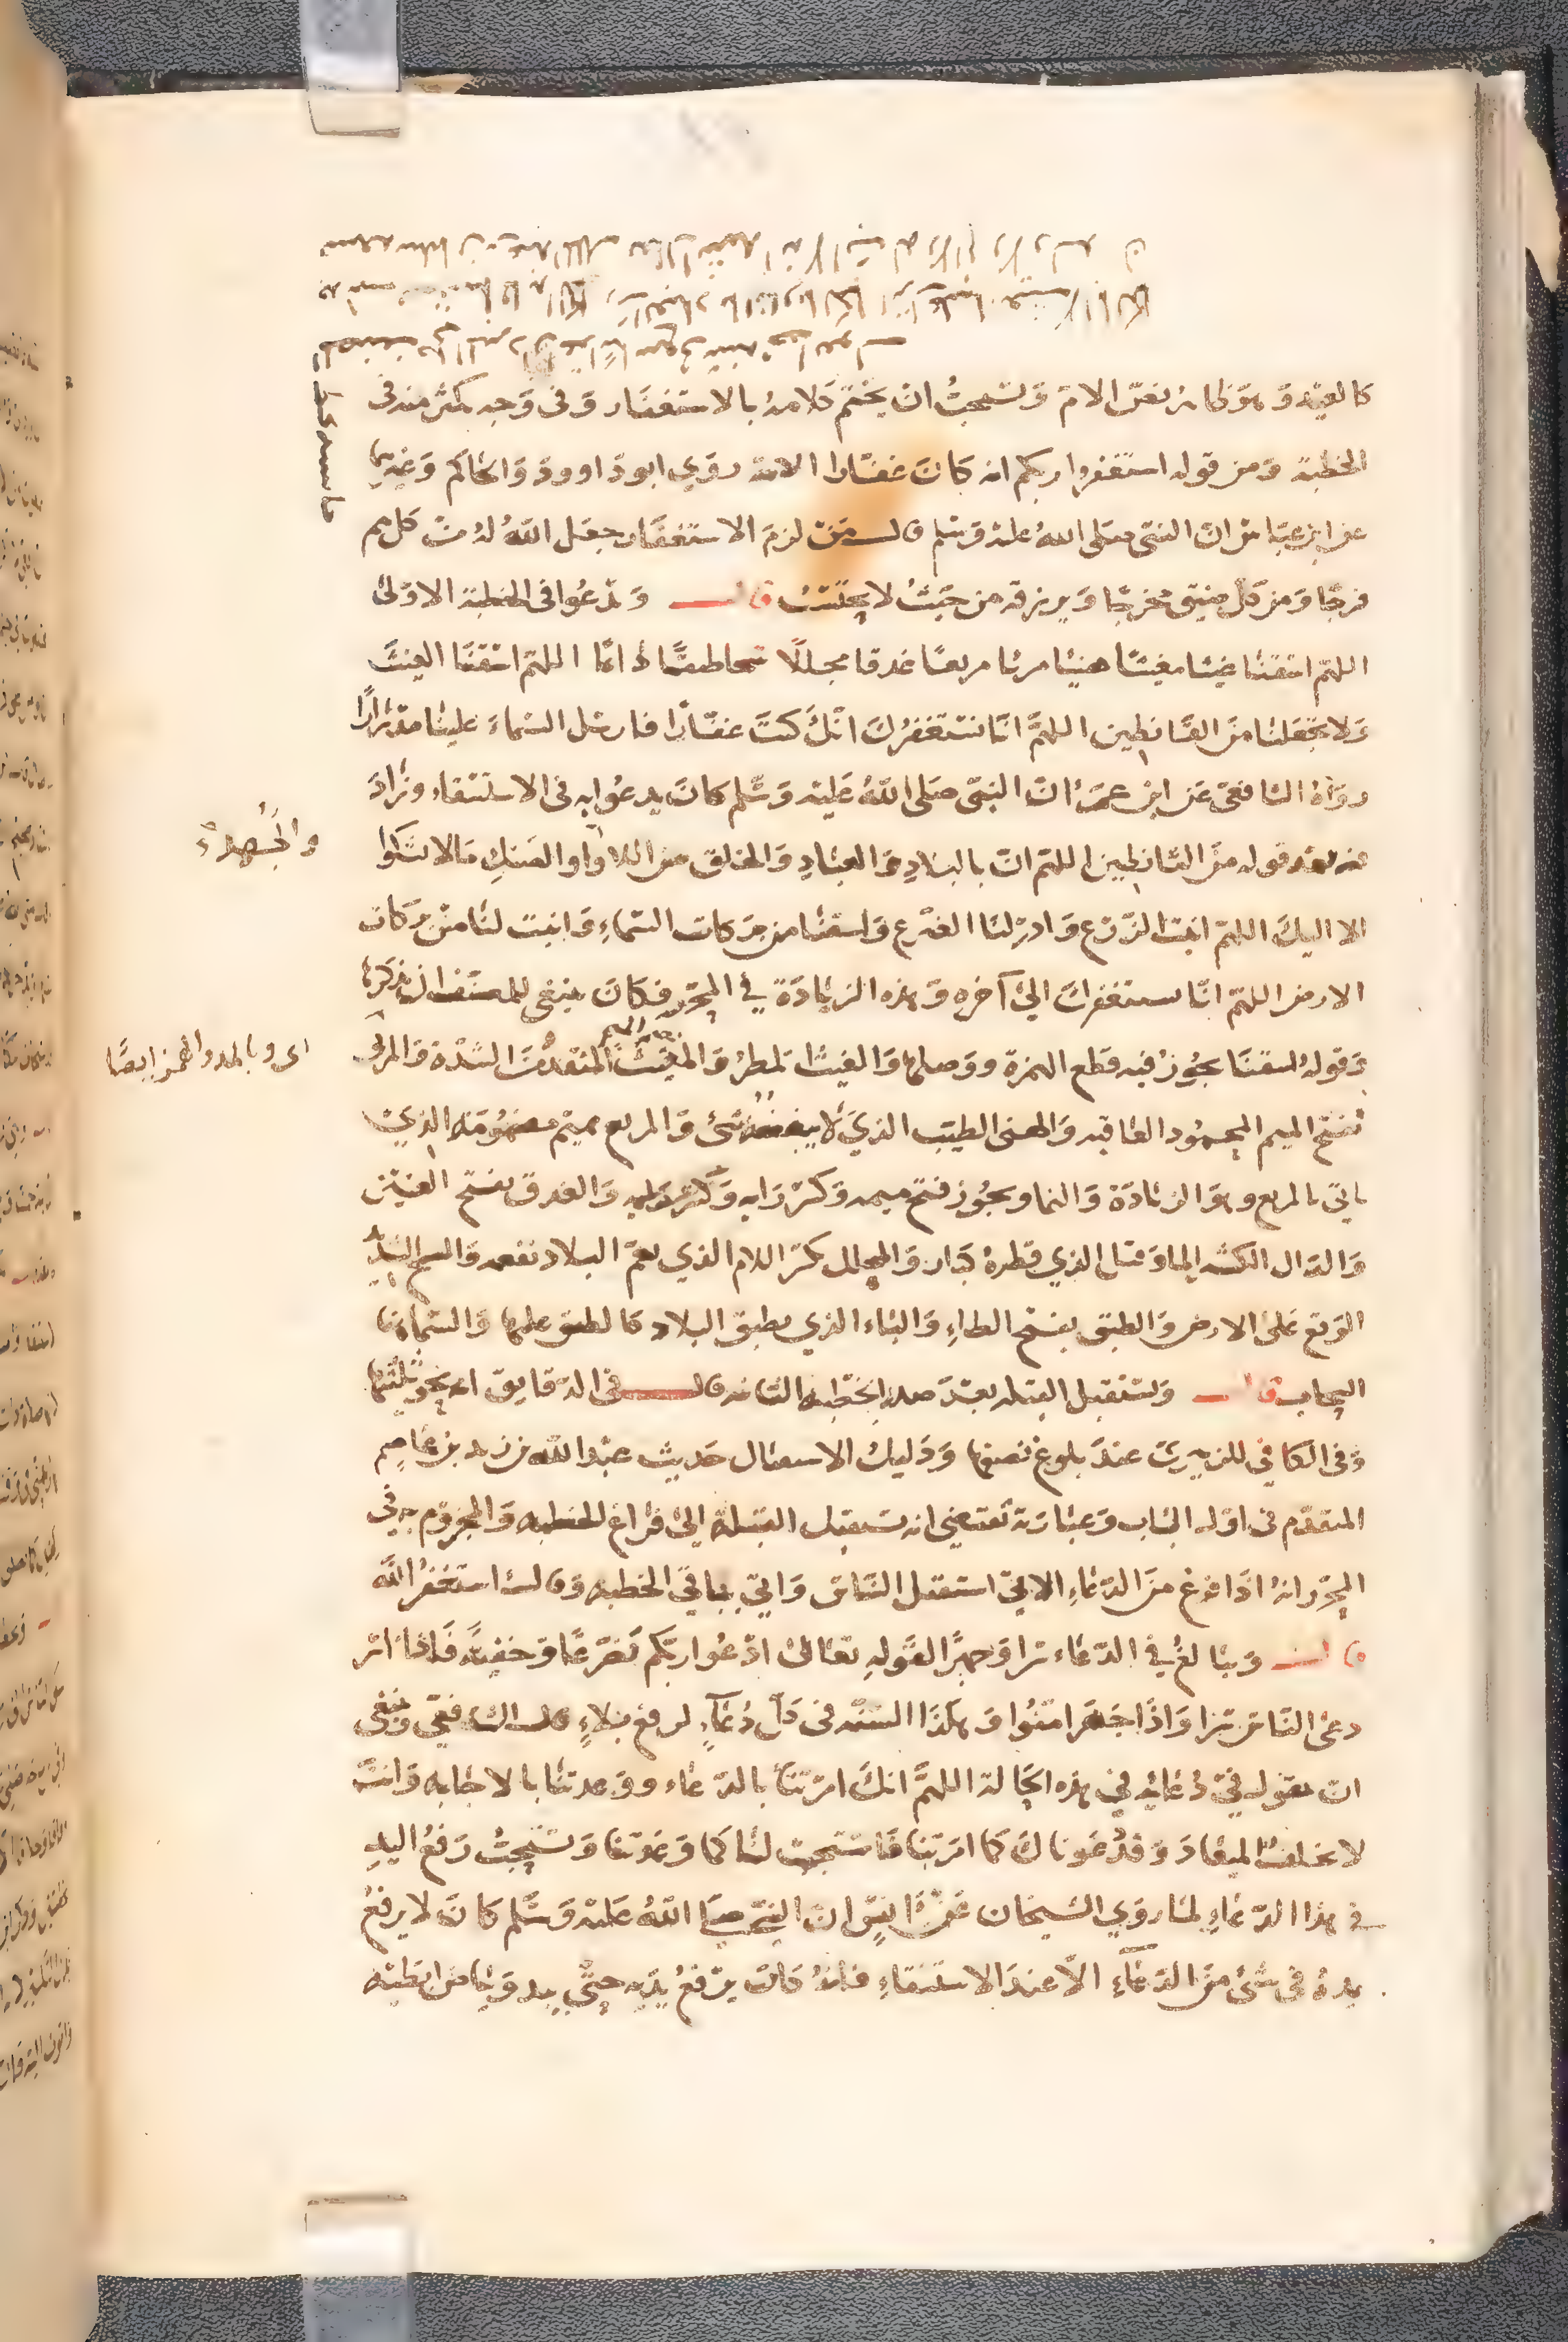 كالعيد وهو ظاهر نص الام ويستحب ان يختم كلامه بالاستغفار وفي وجه يكثر منه في
الخطبة ومن قوله استغفروا ربكم انه كان غفارا الاية روي ابو داوود والحاكم وغيرهما
عن ابن عباس ان النبي صلى الله عليه وسلم قال من لزم الاستغفار جعل الله له من كل هم
فرجا ومن كل ضيق مخرجا ويرزقه من حيث لا يحتسب قال ويدعوا في الخطبة الاولى
اللهم اسقنا غيثا مغيثا هنيئا مريئا مريعا غدقا مجللا سحا طبقا دائما اللهم اسقنا الغيث
ولا تجعلنا من القانطين اللهم انا نستغفرك انك كنت غفارا فارسل السماء علينا مدرارا
رواه الشافعي عن ابن عمر ان النبي صلى الله عليه وسلم كان يدعوا به في الاستسقاء وزاد
فيه بعد قوله من القانطين اللهم ان بالبلاد والعباد والخلق من اللاواء والضنك ما لا نشكوا
والجهد
الا اليك اللهم انبت الزرع وادر لنا الضرع واسقنا من بركات السماء وانبت لنا من بركات
الارض اللهم انا نستغفرك الى آخره وهذه الزيادة في المحرر فكان ينبغي للمصنف ان يذكرها
وقوله اسقنا يجوز فيه قطع الهمزة ووصلها والغيث المطر والمغيث المنقذ من الشدة والمري
اي وبالمد والهمز ايضا
بفتح الميم المحمود العاقبه والهني الطيب الذي لا ينغصه شئ والمريع بميم مضمومة الذي
ياتي بالريع وهو الزيادة والنما ويجوز فتح ميمه وكسر رايه والغدق بفتح الغين
والدال الكثير الما وقيل الذي قطره كبار والمجلل بكسر اللام الذي يعم البلاد نفعه والسح الشديد
الوقع على الارض والطبق بفتح الطاء والباء الذي يطبق البلاد كالطبق عليها والسماء هنا
السحاب قال ويستقبل القبلة بعد صدر الخطبه الثانيه قال في الدقايق اي نحو ثلثها
وفي الكافي للزبيري عند بلوغ نصفها ودليل الاستقبال حديث عبد الله بن زيد بن عاصم
المتقدم في اول الباب وعبارته تقتضي انه يستقبل القبلة الى فراغ الخطبه والمجزوم به في
المحرر انه اذا فرغ من الدعاء استقبل الناس واتي بباقي الخطبه وقال استغفر الله
قال ويبالغ في الدعاء سرا وجهرا لقوله تعالى ادعوا ربكم تضرعا وخفية فاذا اسر
دعى الناس سرا واذا جهر امنوا وهكذا السنه في كل دعاء لرفع بلاء قال الشافعي وينبغي
ان يقول في دعايه في هذه الحالة اللهم انك امرتنا بالدعاء ووعدتنا بالاجابه وانت
لا تخلف الميعاد وقد دعوناك كما امرتنا فاستجب لنا كما وعدتنا ويستحب رفع اليد
في هذا الدعاء لما روي الشيخان عن انس ان النبي صلى الله عليه وسلم كان لا يرفع
يده في شئ من الدعاء الا عند الاستسقاء فانه كان يرفع يديه حتى يبدو بياض ابطيه